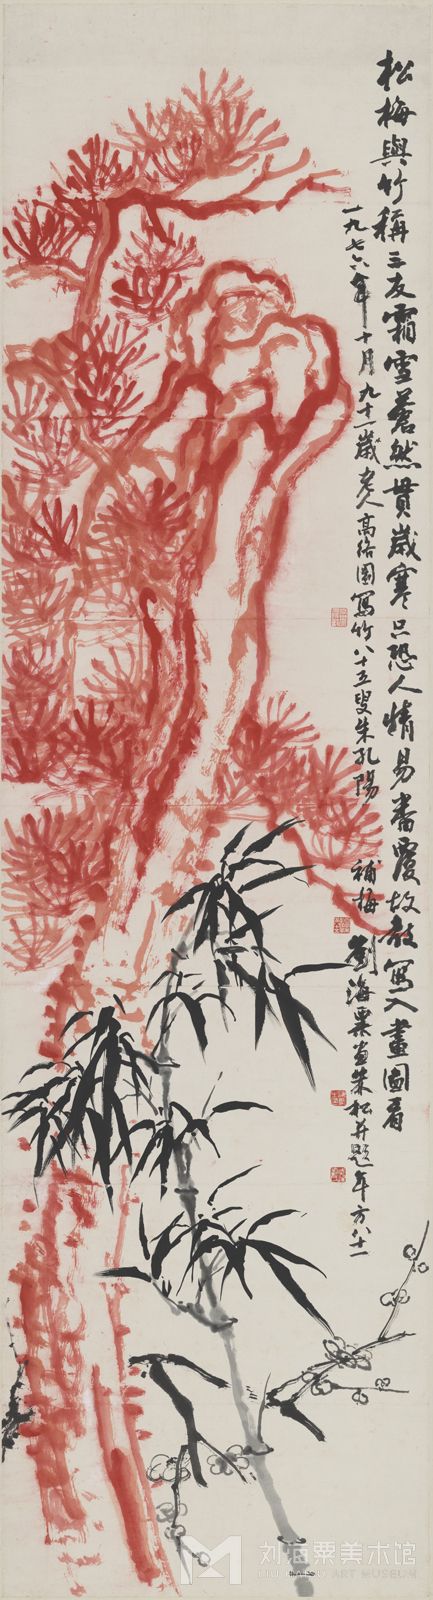 松梅與竹稱三友霜雪蒼然貫歲寒只恐人情易番覆故教寫入畫圖看
一九七六年十月九十一歲老人高絡園寫竹八十五叟朱孔陽補梅
劉海粟畫朱松并題年方八十一
刘海粟美术馆
LIU HAISU ART MUSEUM